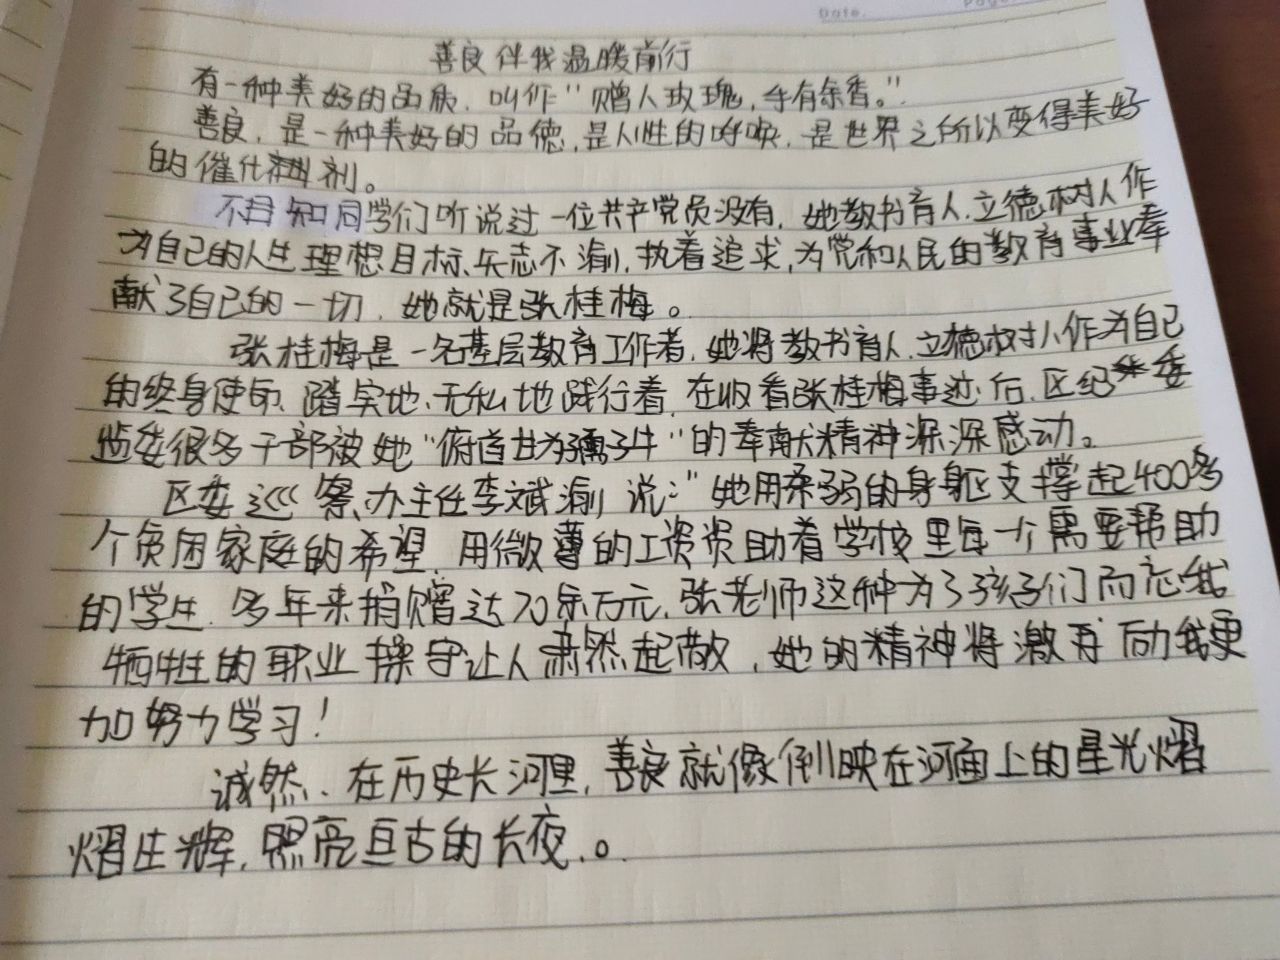 Date.
Page
善良伴我温暖前行
有一种美好的品质，叫作"赠人玫瑰，手有余香。"
善良，是一种美好的品德，是人性的呼唤，是世界之所以变得美好
的催化剂。
不知同学们听说过一位共产党员没有，她教书育人、立德树人作
为自己的人生理想目标、矢志不渝，执着追求，为党和人民的教育事业奉
献了自己的一切，她就是张桂梅。
张桂梅是一名基层教育工作者，她将教书育人、立德树人作为自己
的终身使命、踏实地、无私地践行着，在收看张桂梅事迹后，区纪委
监委很多干部被她"俯首甘为孺子牛"的奉献精神深深感动。
区委巡察办主任李斌渝说："她用柔弱的身躯支撑起400多
个贫困家庭的希望，用微薄的工资资助着学校里每一个需要帮助
的学生，多年来捐赠达70余万元，张老师这种为了孩子们而忘我
牺牲的职业操守让人肃然起敬，她的精神将激励我更
加努力学习！
诚然、在历史长河里，善良就像倒映在河面上的星光熠
熠生辉，照亮亘古的长夜。